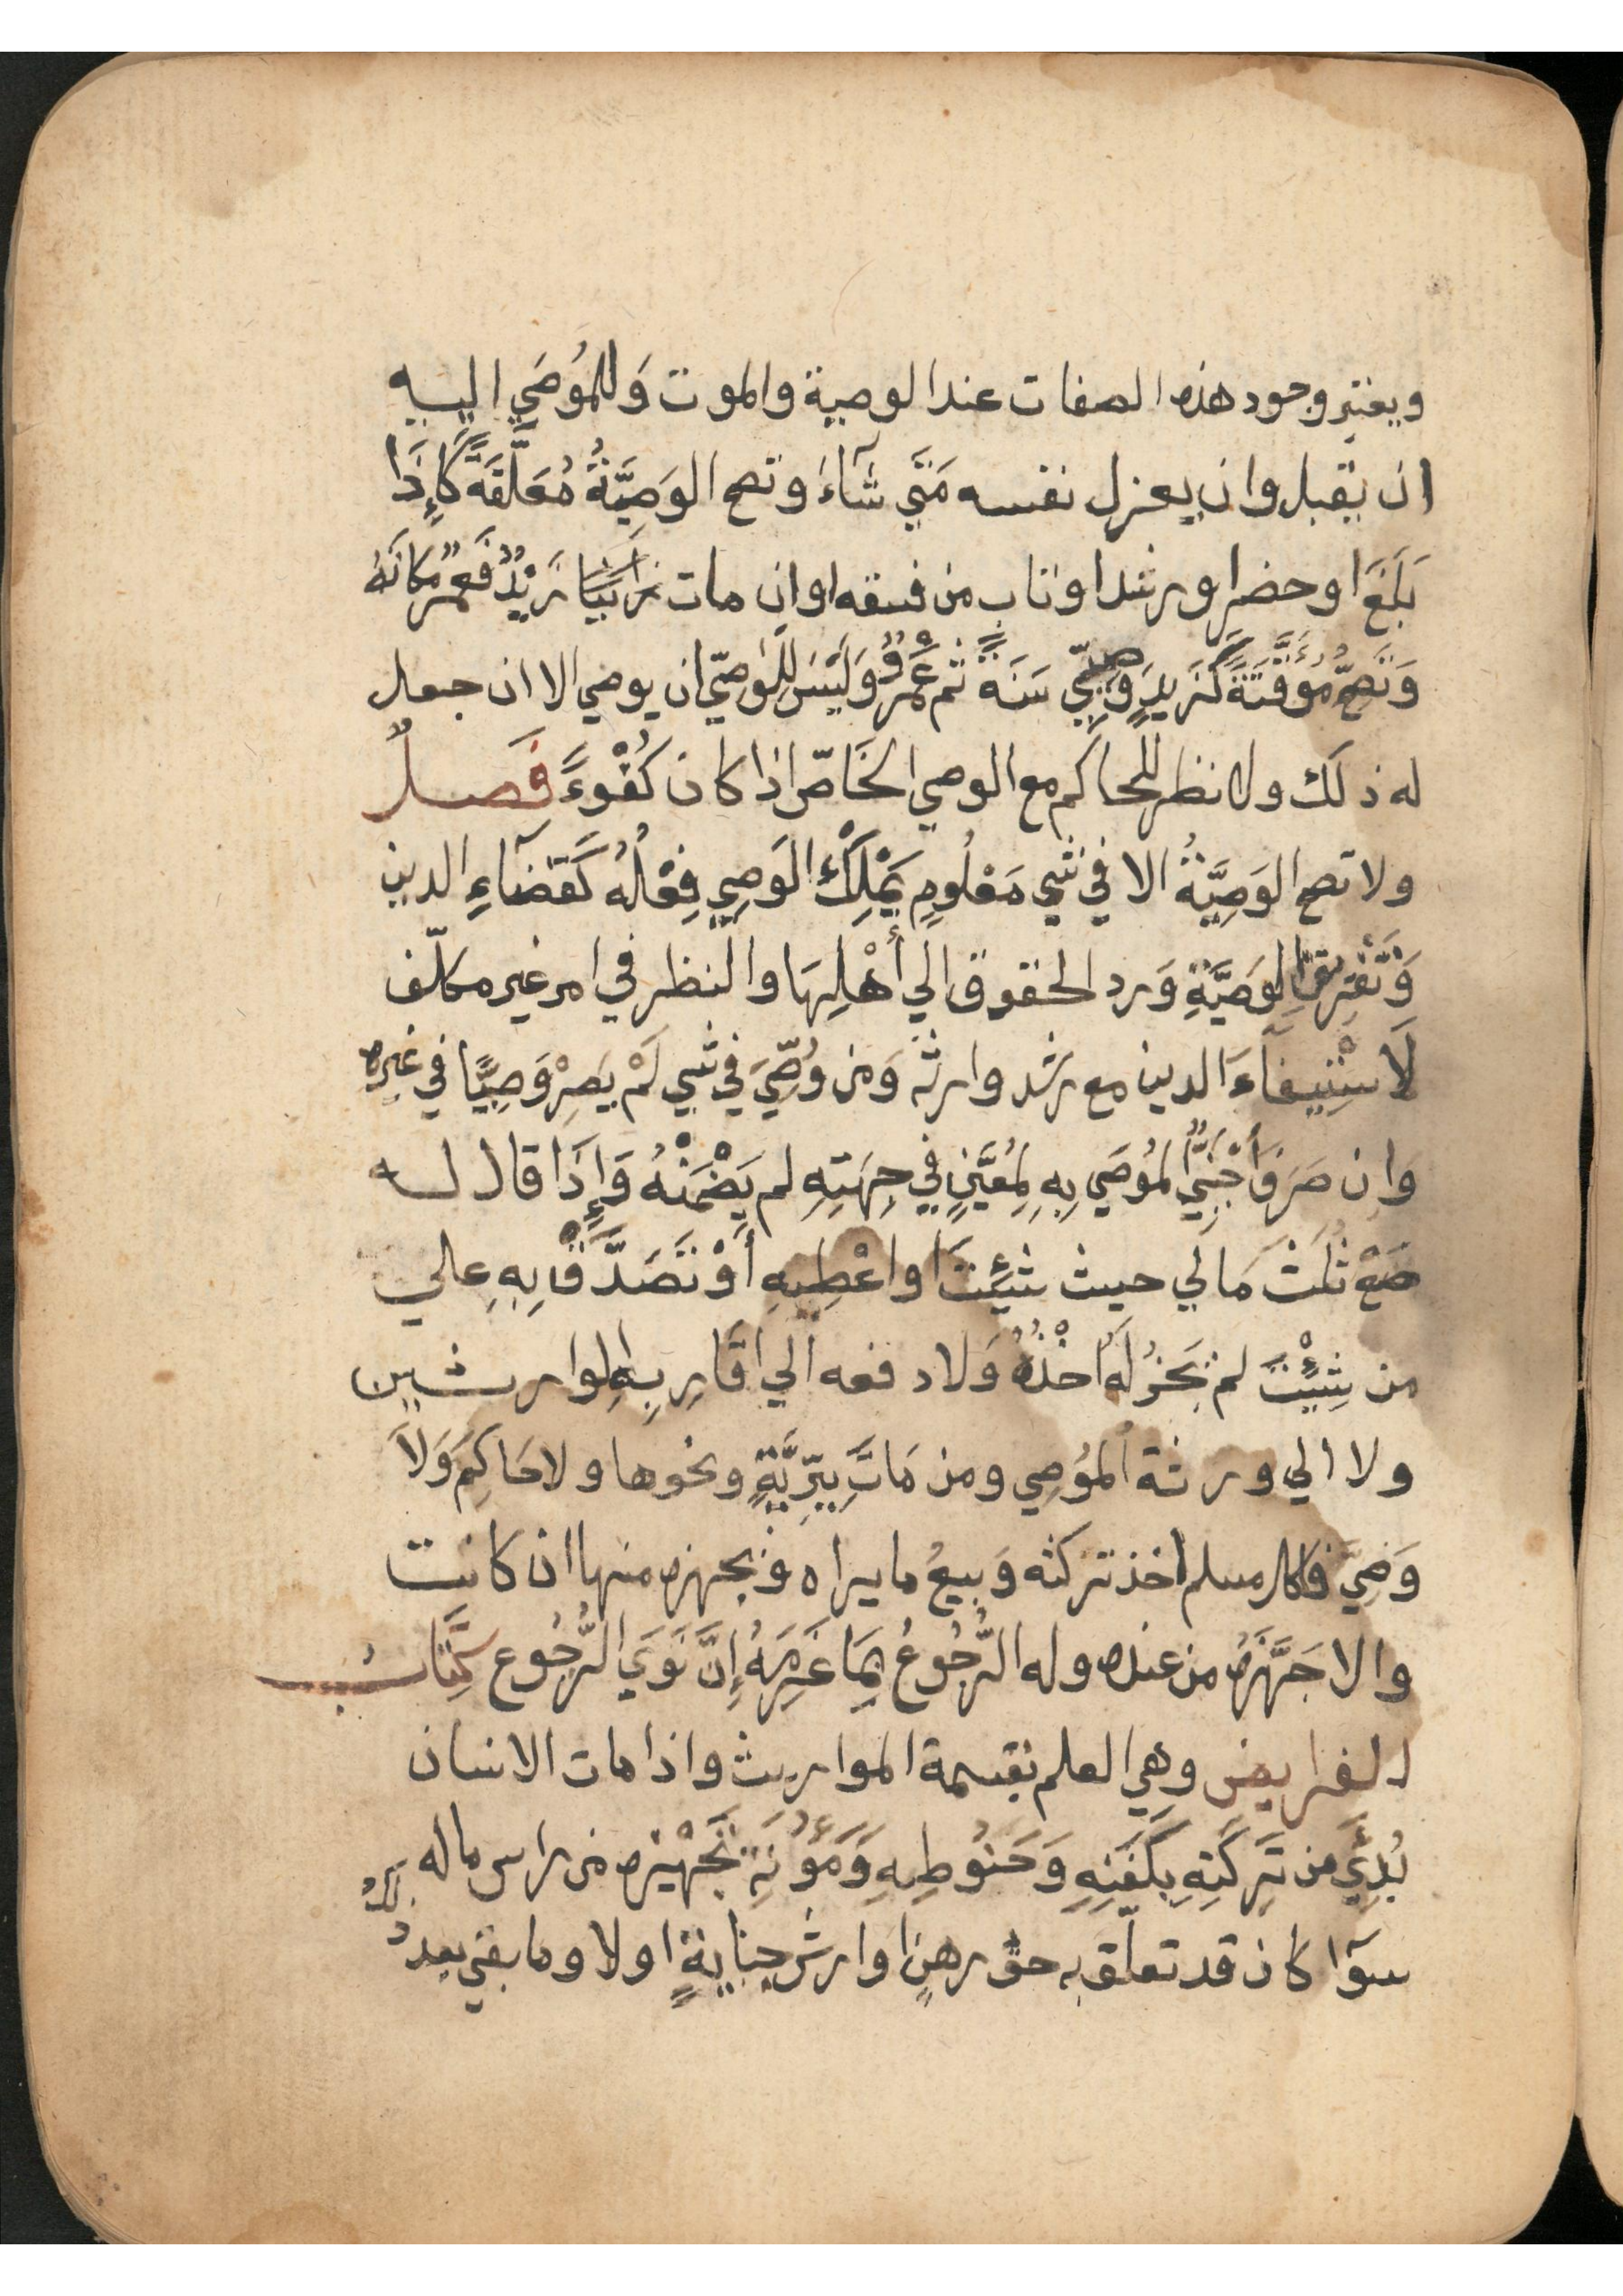 ويعتبر وجود هذه الصفات عند الوصية والموت وَللمُوصَي اليه
ان يقبل وان يعزل نفسه مَتَي شآءَ وتصح الوَصِيَّةُ مُعَلَّقَةً كَإِذَا
بَلَغَ اوحضر اورشد اوتاب من فسقه اوان مات زيد فعمرٌو مكانَهُ
وَتَصِحُّ مُؤَقَّتَةً كَزَيدٍ وَصِيِّي سَنَةً ثم عَمْرٌو وَلَيْسَ لِلوَصِيّ ان يوصي الا ان جعل
له ذلك ولا نظر للحاكم مع الوصي الخَاصّ اذا كان كُفْوءً فَصلٌ
ولا تصح الوَصِيَّةُ الا في شي مَعْلُومٍ يَمْلِكُ الوَصِي فِعْلَهُ كَقَضَآءِ الدين
وَتَفْرِيقِ الوَصِيَّةِ وَرد الحقوق الي أَهْلِهَا والنظر في امر غير مكلّف
لَا سْتِيفَآءَ الدين مع رشد وارثه وَمن وُصِّيَ في شي لَمْ يَصِرْ وَصِيًّا في غيره
وَان صَرَفَ أَجْنَبِيٌّ المُوصَي بِهِ لِمُعَيَّنٍ فِي جِهَتِهِ لم يَضْمَنْهُ وَإِذَا قال له
ضَعْ ثُلُثَ مَالي حيث شِئْتَ اواعْطِهِ أوْ تَصَدَّقْ بِهِ علي
من شِئْتَ لم يَجُزْ لَهُ اخْذُهُ وَلا دفعه الي اقَارِبِهِ الوارثين
ولا الي ورثة المُوصِي ومن مَاتَ بِبَرِّيَّةٍ ونحوها ولا حَاكِمَ وَلَا
وَصِيَّ فلكل مسلم اخذ تركته وَبيعُ ما يراه وتجهيزه منها ان كانت
والا جَهَّزَهُ من عنده وله الرُّجُوعُ بِمَا غَرِمَهُ إِنْ نَوَيَ الرُّجُوع كِتَابُ
الفرايض وهي العلم بقسمة المواريث واذا مات الانسان
بُدِئَ من تَرِكَتِهِ بِكَفَنِهِ وَحَنُوطِهِ وَمَؤُنَةِ تَجْهِيْزه من راس ماله
سوآ كان قد تعلّق به حق رهنٍ اوارش جنايةٍ اولا وما بقي بعد